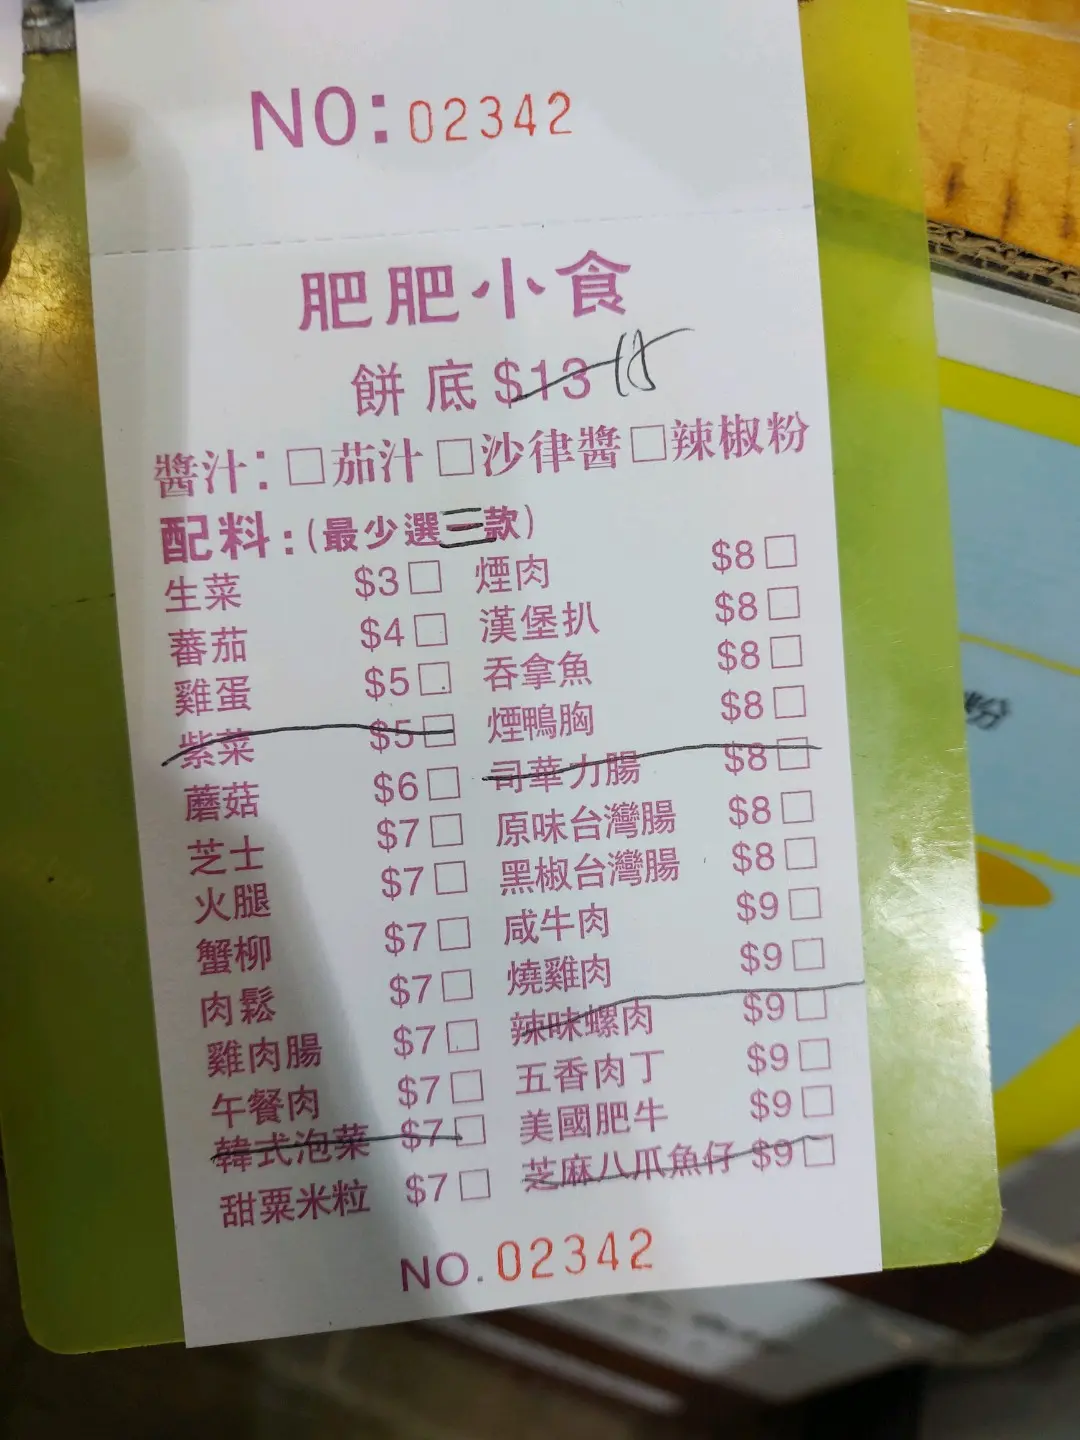 NO: 02342
肥肥小食
餅底 $13 18
醬汁: □茄汁 □沙律醬 □辣椒粉
配料: (最少選三款)
生菜 $3 □ 煙肉 $8 □
蕃茄 $4 □ 漢堡扒 $8 □
雞蛋 $5 □ 吞拿魚 $8 □
紫菜 $5 □ 煙鴨胸 $8 □
蘑菇 $6 □ 司華力腸 $8 □
芝士 $7 □ 原味台灣腸 $8 □
火腿 $7 □ 黑椒台灣腸 $8 □
蟹柳 $7 □ 咸牛肉 $9 □
肉鬆 $7 □ 燒雞肉 $9 □
雞肉腸 $7 □ 辣味螺肉 $9 □
午餐肉 $7 □ 五香肉丁 $9 □
韓式泡菜 $7 □ 美國肥牛 $9 □
甜粟米粒 $7 □ 芝麻八爪魚仔 $9 □
NO. 02342
粉